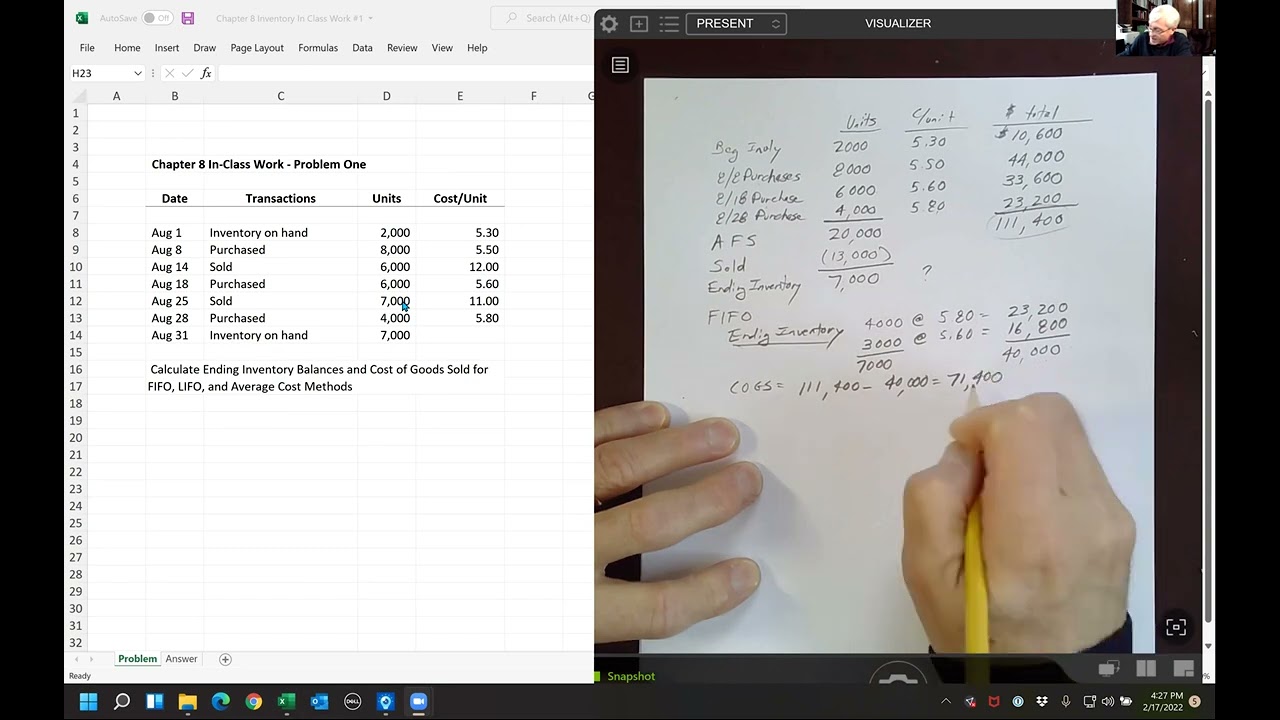 AutoSave Off Chapter 8 Inventory In Class Work #1 Search (Alt+Q)
File Home Insert Draw Page Layout Formulas Data Review View Help
H23 fx
A B C D E F G
1
2
3
4 Chapter 8 In-Class Work - Problem One
5
6 Date Transactions Units Cost/Unit
7
8 Aug 1 Inventory on hand 2,000 5.30
9 Aug 8 Purchased 8,000 5.50
10 Aug 14 Sold 6,000 12.00
11 Aug 18 Purchased 6,000 5.60
12 Aug 25 Sold 7,000 11.00
13 Aug 28 Purchased 4,000 5.80
14 Aug 31 Inventory on hand 7,000
15
16 Calculate Ending Inventory Balances and Cost of Goods Sold for
17 FIFO, LIFO, and Average Cost Methods
18
19
20
21
22
23
24
25
26
27
28
29
30
31
32
Problem Answer
Ready
PRESENT VISUALIZER
Units C/unit $ total
Beg Invty 2000 5.30 $10,600
8/8 Purchases 8000 5.50 44,000
8/18 Purchase 6000 5.60 33,600
8/28 Purchase 4,000 5.80 23,200
AFS 20,000 111,400
Sold (13,000)
Ending Inventory 7,000 ?
FIFO
Endig Inventory 4000 @ 5.80 = 23,200
3000 @ 5.60 = 16,800
7000 40,000
COGS = 111,400 - 40,000 = 71,400
Snapshot
DELL
4:27 PM
2/17/2022
5